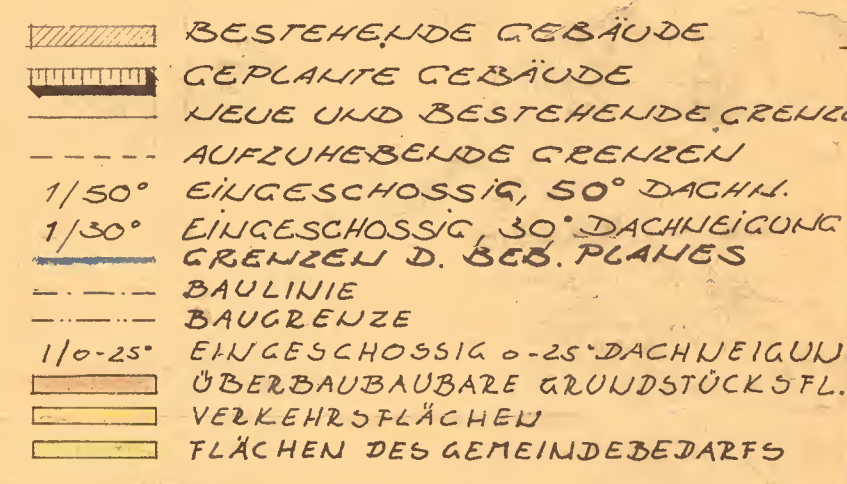 BESTEHENDE GEBÄUDE
GEPLANTE GEBÄUDE
NEUE UND BESTEHENDE GRENZE
AUFZUHEBENDE GRENZEN
1/50° EINGESCHOSSIG, 50° DACHN.
1/30° EINGESCHOSSIG, 30° DACHNEIGUNG
GRENZEN D. BEB. PLANES
BAULINIE
BAUGRENZE
1/0-25° EINGESCHOSSIG 0-25° DACHNEIGUN
ÜBERBAUBAUBARE GRUNDSTÜCKSFL.
VERKEHRSFLÄCHEN
FLÄCHEN DES GEMEINDEBEDARFS